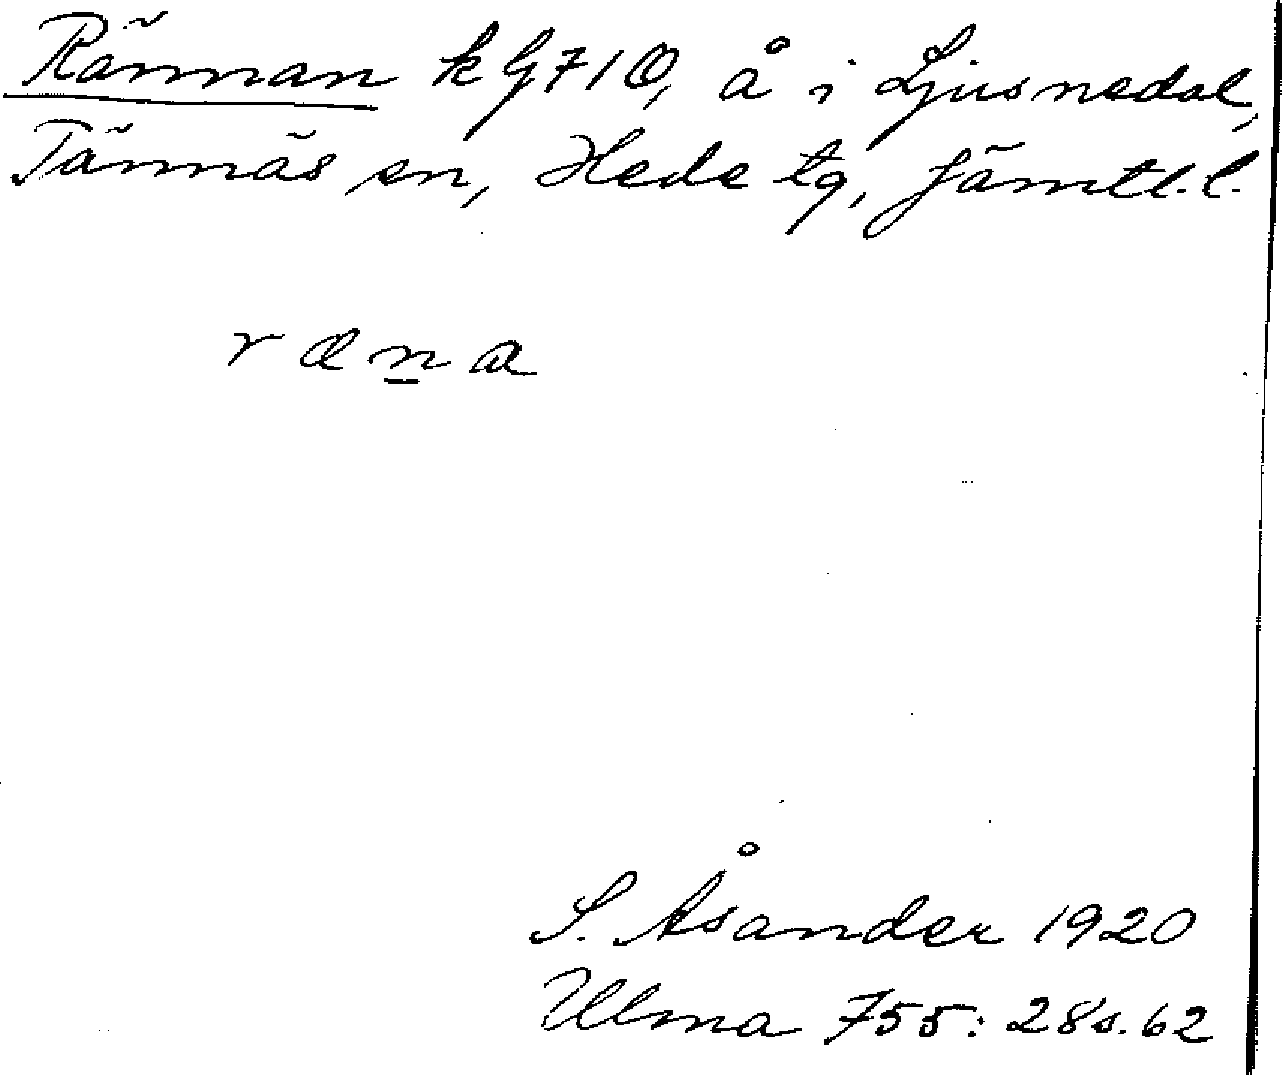 Rännan k G710, å i Ljusnedal,
Tännäs sn, Hede tg, Jämtl. l.
r æ n a
S. Åsander 1920
Ulma 755: 28 s. 62